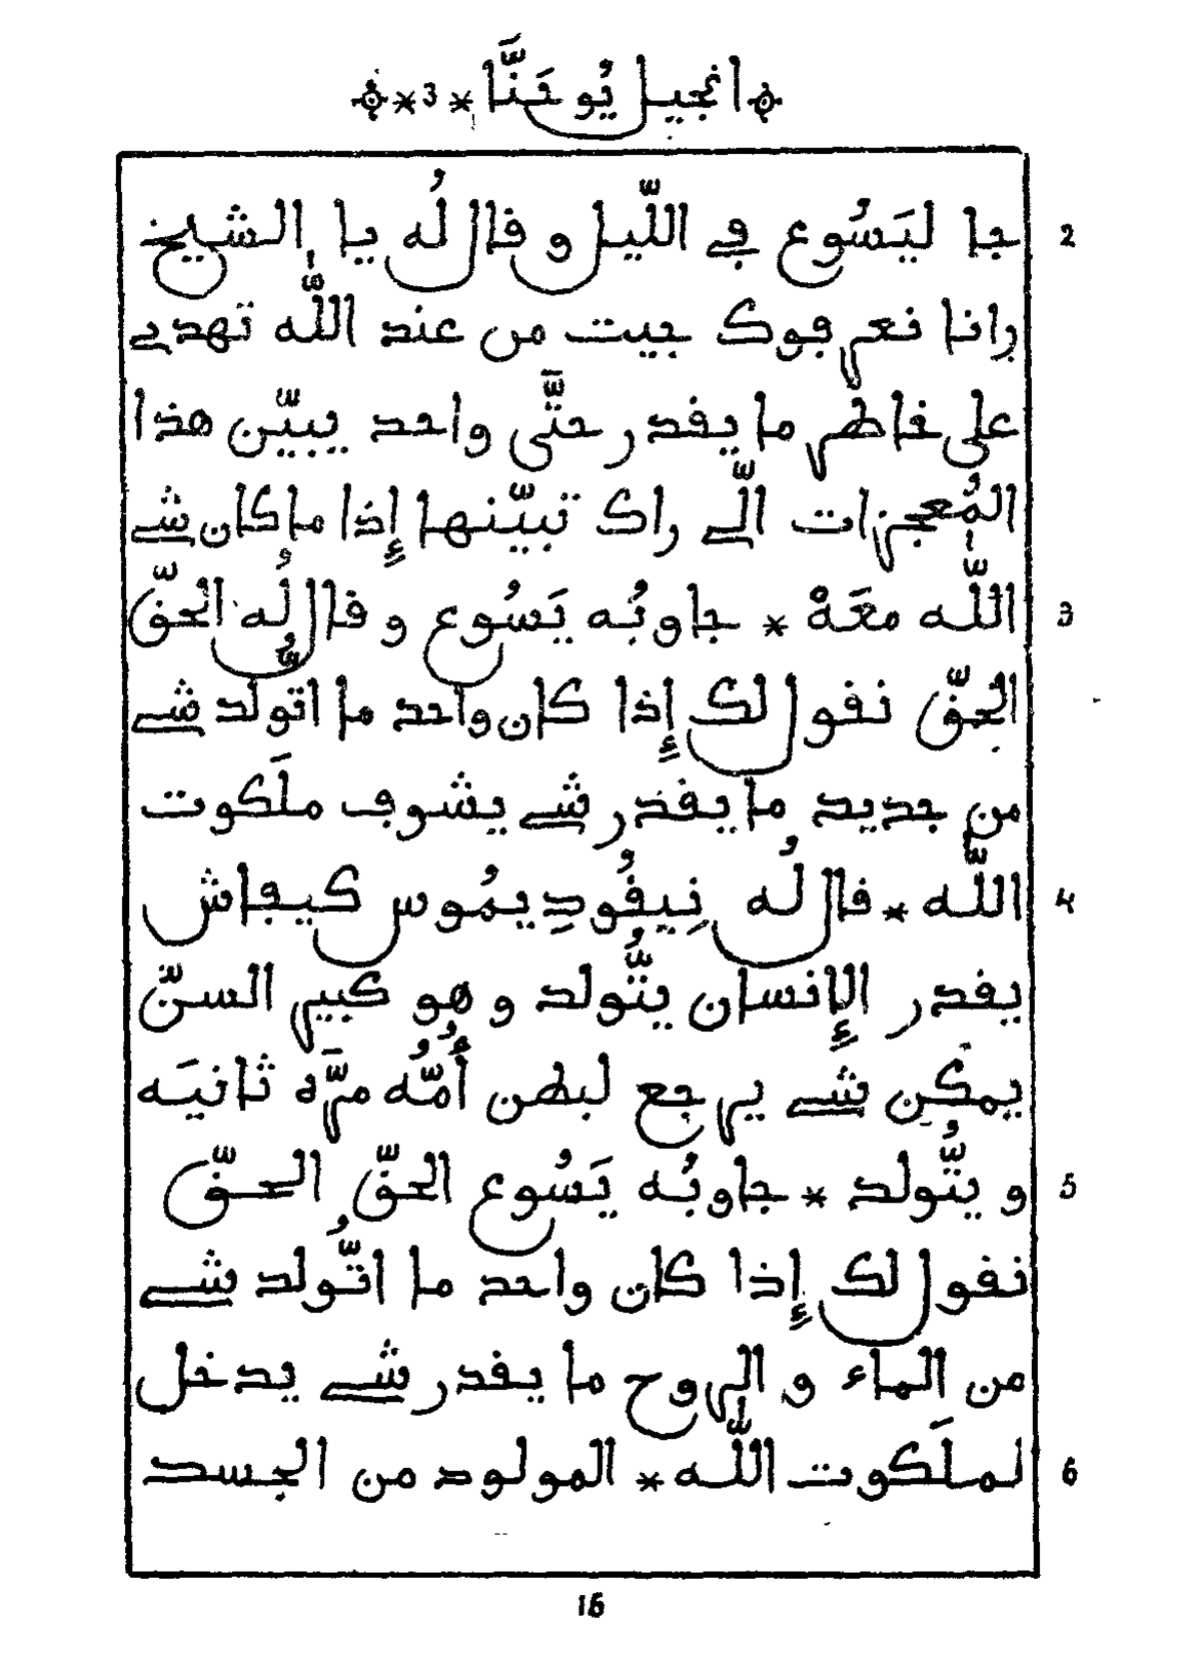 انجيل يُوحَنَّا * 3 *
2 جا ليَسُوع في اللّيل و قال لُه يا الشيخ
رانا نعرفوك جيت من عند اللّٰه تهدي
على خاطر ما يقدر حتَّى واحد يبيّن هذا
المُعجزات الّي راك تبيّنها إذا ما كان شي
3 اللّٰه معَهْ * جاوبُه يَسُوع و قال لُه الحقّ
الحقّ نقول لك إذا كان واحد ما اتّولد شي
من جديد ما يقدر شي يشوف ملَكوت
4 اللّٰه * قال لُه نِيقُودِيمُوس كيفاش
يقدر الإنسان يتُّولد و هو كبير السنّ
يمكن شي يرجع لبطن أُمُّه مرَّة ثانيَه
5 و يتُّولد * جاوبُه يَسُوع الحقّ الحقّ
نقول لك إذا كان واحد ما اتُّولد شي
من الماء و الروح ما يقدر شي يدخل
6 لملَكوت اللّٰه * المولود من الجسد
16